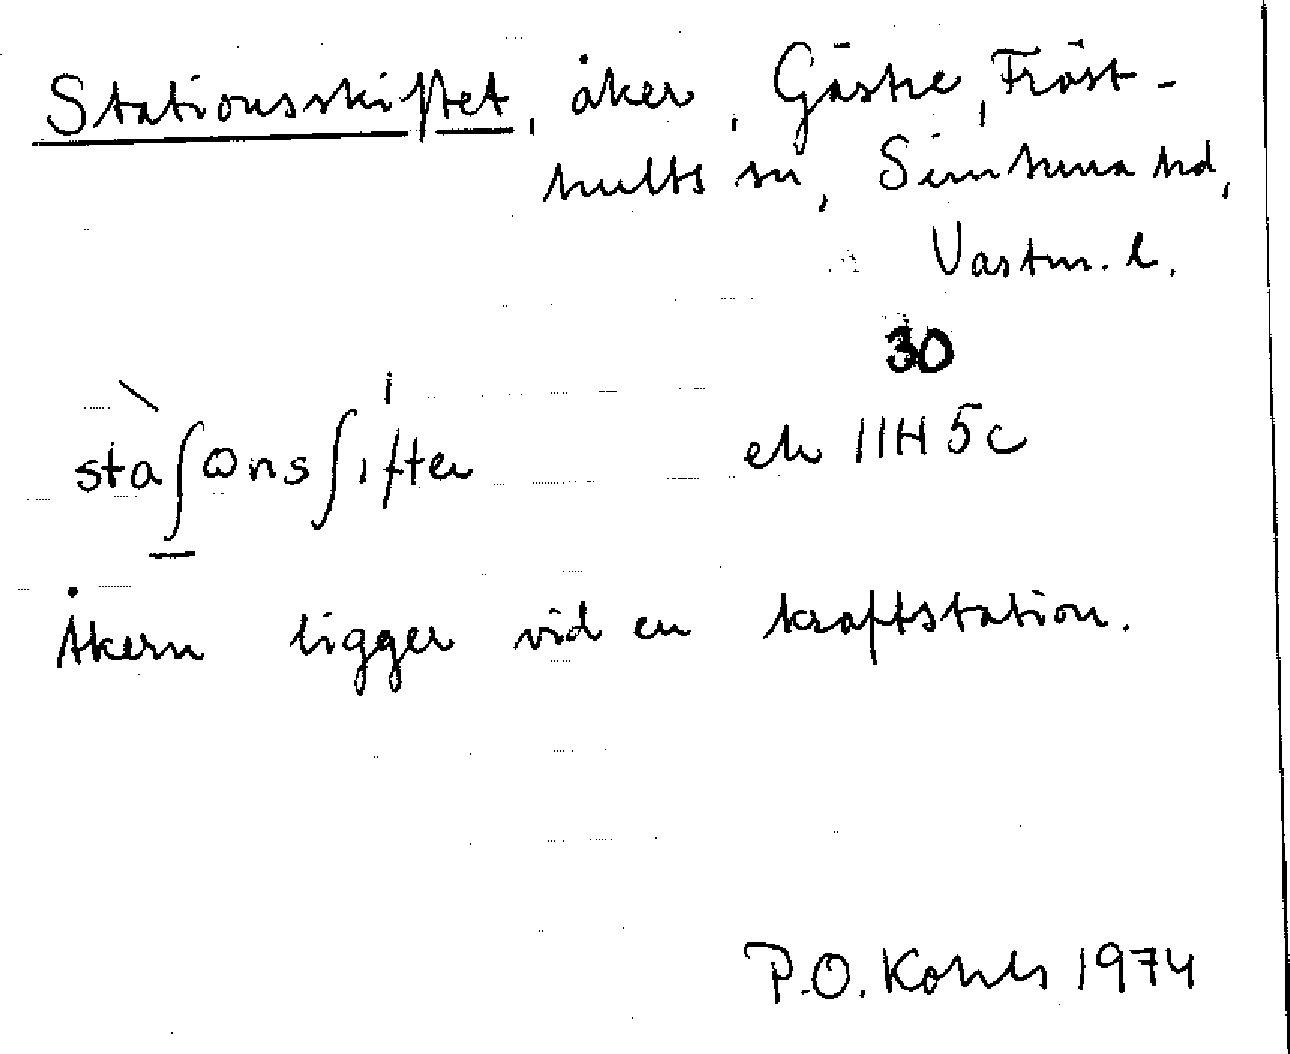 Stationsskiftet, åker, Gästre, Fröst-
hults sn, Simtuna hd,
Västm. l.
30
staʃωnsʃifter
ek 11H 5c
Åkern ligger vid en kraftstation.
P.O. Kohls 1974